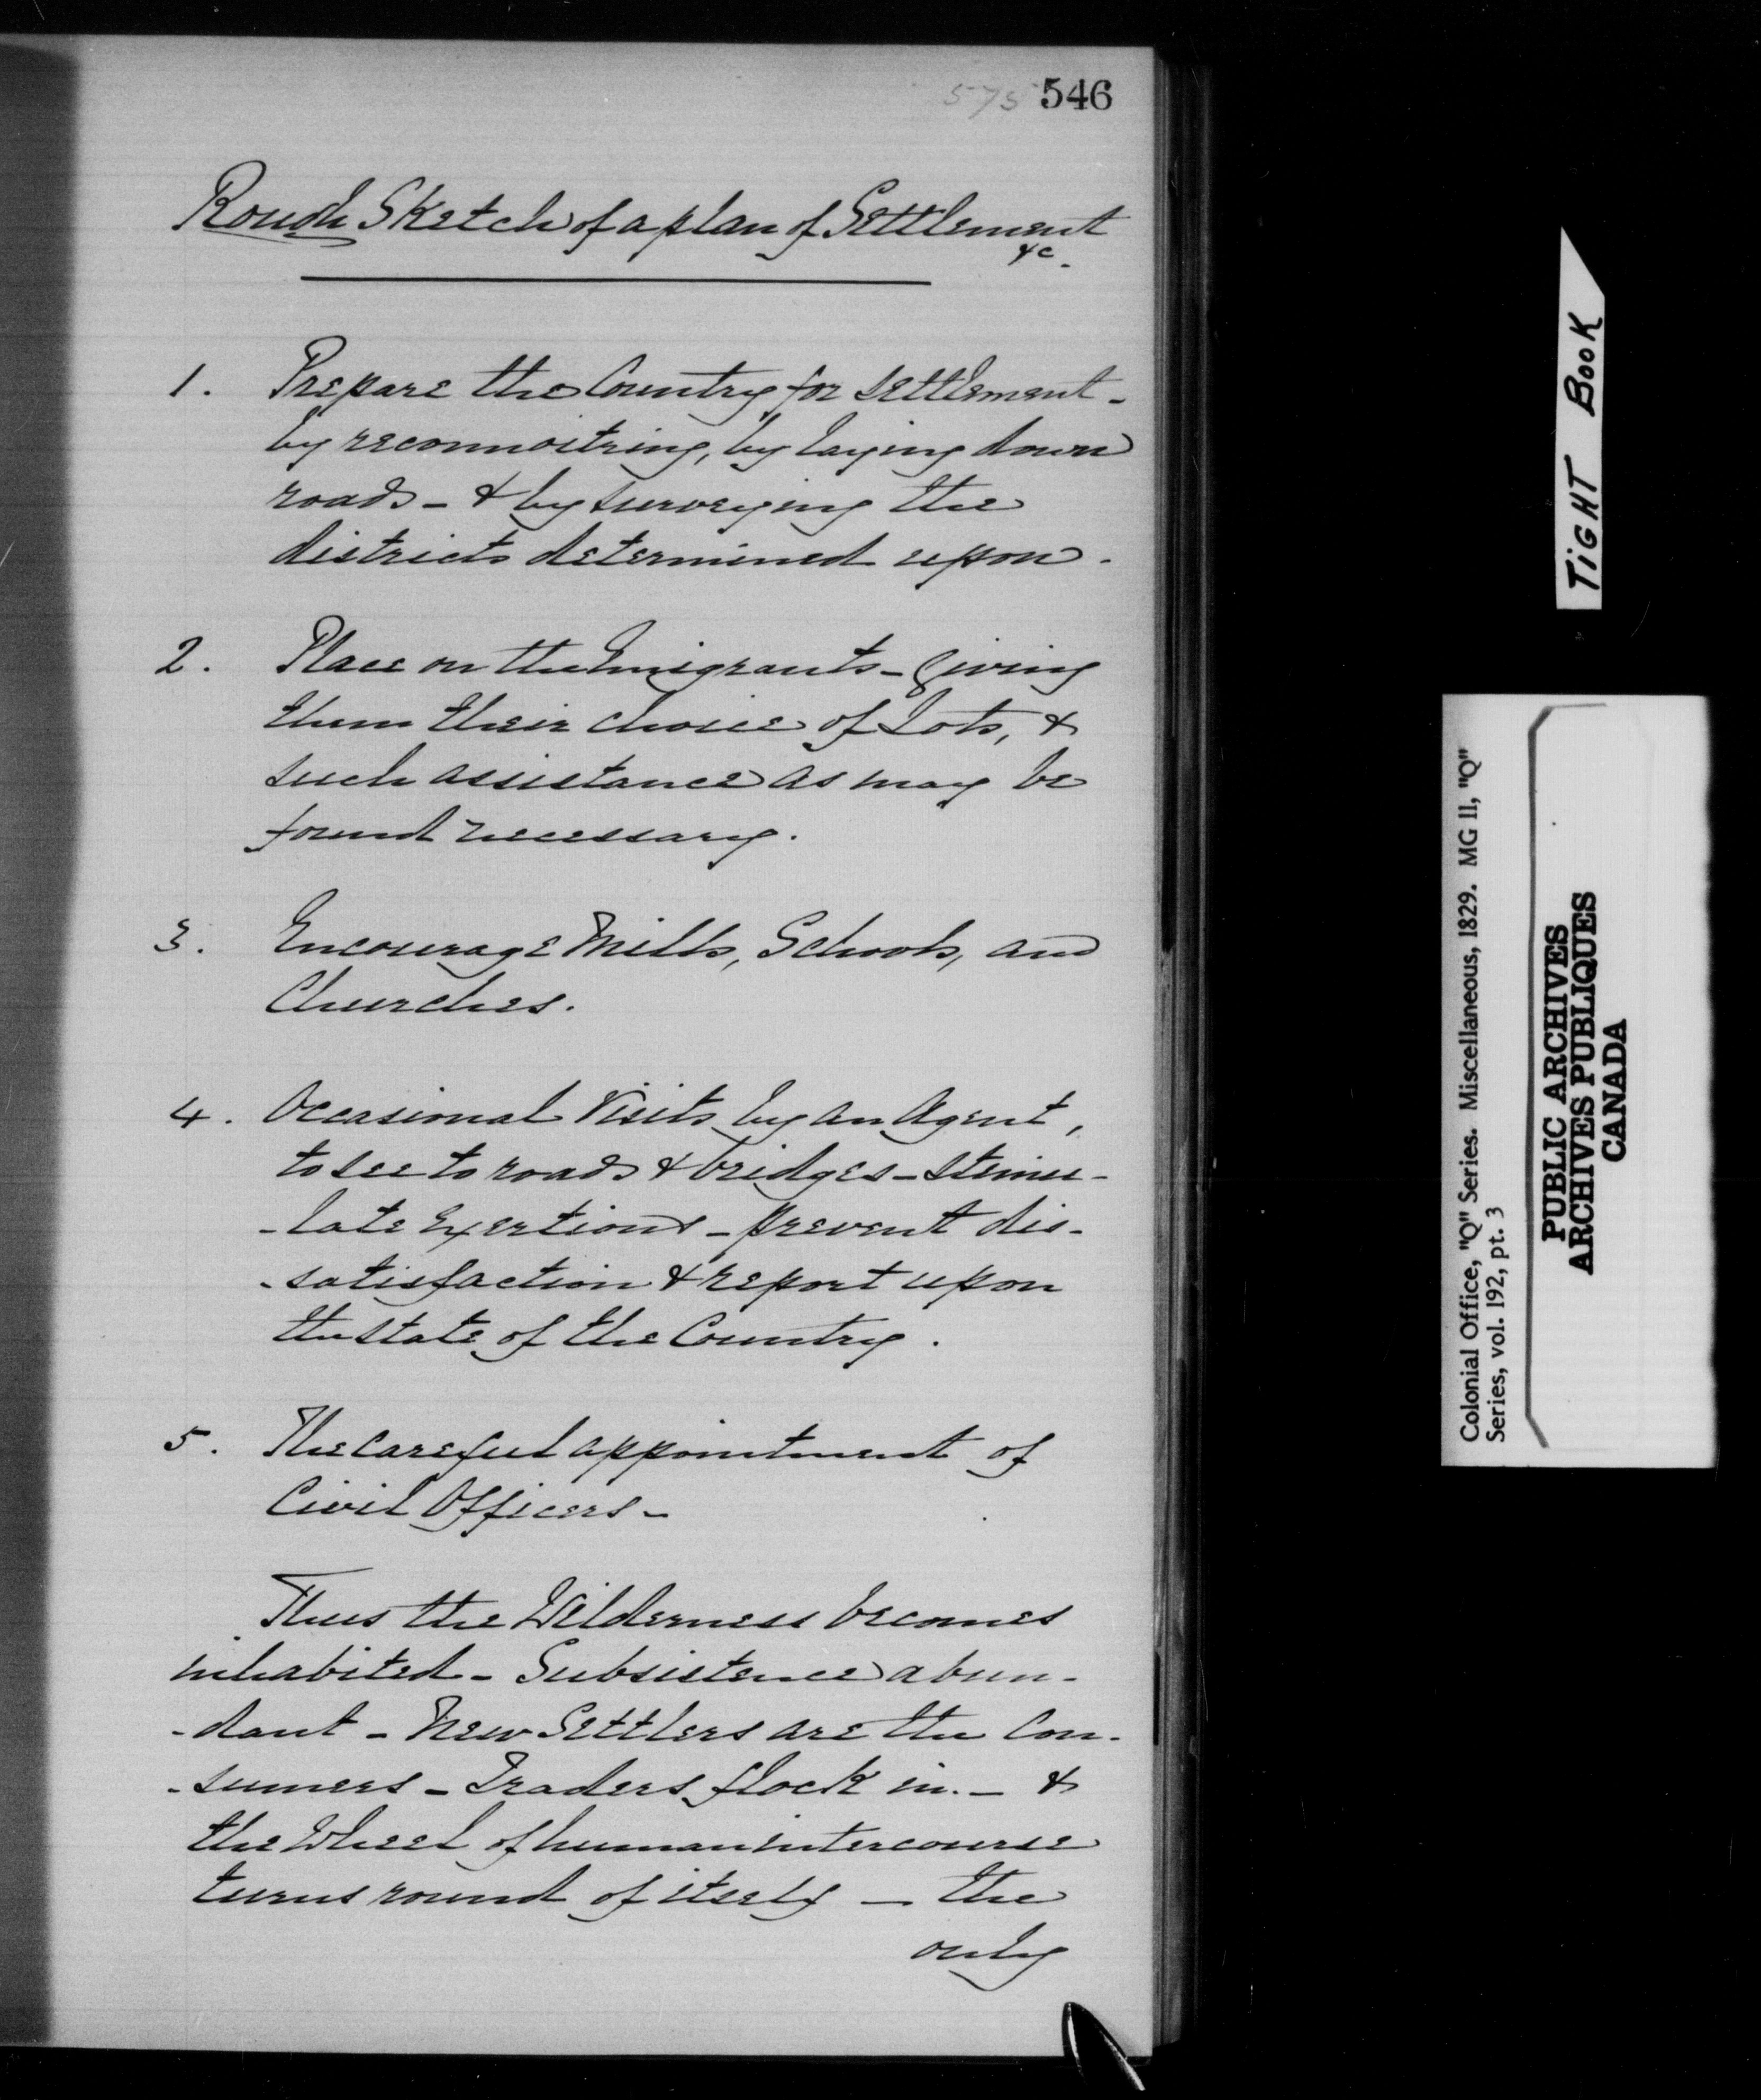 575 546
Rough Sketch of a plan of Settlement
&c.
1. Prepare the Country for settlement -
by reconnoitring, by laying down
roads - & by surveying the
districts determined upon.
2. Place on the Emigrants - giving
them their choice of Lots, &
such assistance as may be
found necessary.
3. Encourage Mills, Schools, and
Churches.
4. Occasional Visits by an Agent,
to see to roads & bridges - stimu-
-late Exertions - prevent dis-
-satisfaction & report upon
the state of the Country.
5. The careful appointment of
Civil Officers -
Thus the Wilderness becomes
inhabited - Subsistence abun-
-dant - New Settlers are the Con-
-sumers - Traders flock in. - &
the Wheel of human intercourse
turns round of itself - the
only
TIGHT BOOK
Colonial Office, "Q" Series. Miscellaneous, 1829. MG 11, "Q"
Series, vol. 192, pt. 3
PUBLIC ARCHIVES
ARCHIVES PUBLIQUES
CANADA